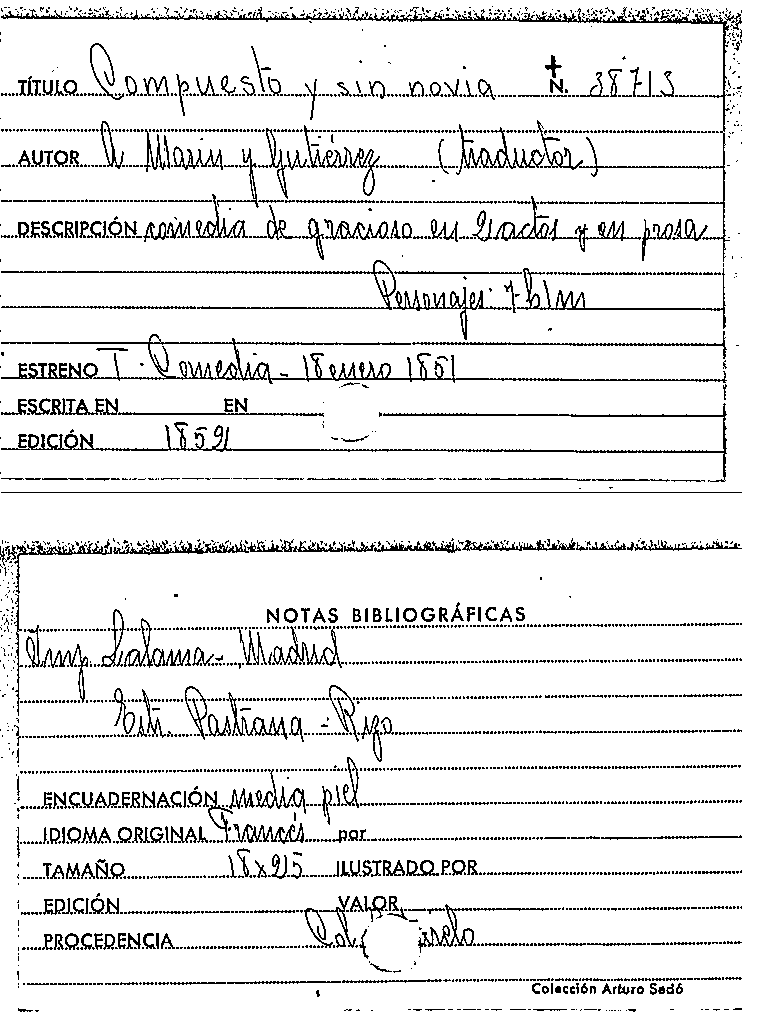 TÍTULO Compuesto y sin novia N. 38713
AUTOR A Marin y Gutiérrez (traductor)
DESCRIPCIÓN comedia de gracioso en 2 actos y en prosa
Personajes: 7 h 1 m
ESTRENO T. Comedia - 18 enero 1851
ESCRITA EN EN
EDICIÓN 1852
NOTAS BIBLIOGRÁFICAS
Imp Lalama - Madrid
Estr. Pastrana - Rizo
ENCUADERNACIÓN media piel
IDIOMA ORIGINAL Francés por
TAMAÑO 18x25 ILUSTRADO POR
EDICIÓN VALOR
PROCEDENCIA Col.
Colección Arturo Sedó